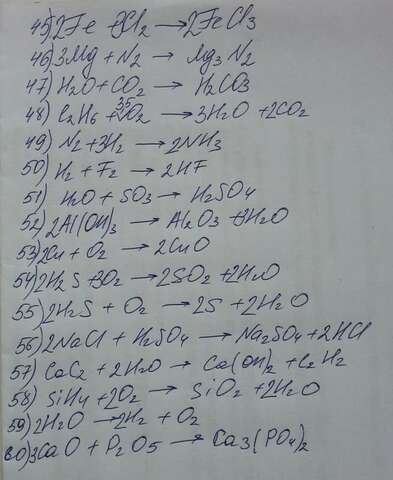 45) 2Fe + 3Cl2 → 2FeCl3
46) 3Mg + N2 → Mg3N2
47) H2O + CO2 → H2CO3
48) C2H6 + 3,5O2 → 3H2O + 2CO2
49) N2 + 3H2 → 2NH3
50) H2 + F2 → 2HF
51) H2O + SO3 → H2SO4
52) 2Al(OH)3 → Al2O3 + 3H2O
53) 2Cu + O2 → 2CuO
54) 2H2S + 3O2 → 2SO2 + 2H2O
55) 2H2S + O2 → 2S + 2H2O
56) 2NaCl + H2SO4 → Na2SO4 + 2HCl
57) CaC2 + 2H2O → Ca(OH)2 + C2H2
58) SiH4 + 2O2 → SiO2 + 2H2O
59) 2H2O → 2H2 + O2
60) 3CaO + P2O5 → Ca3(PO4)2